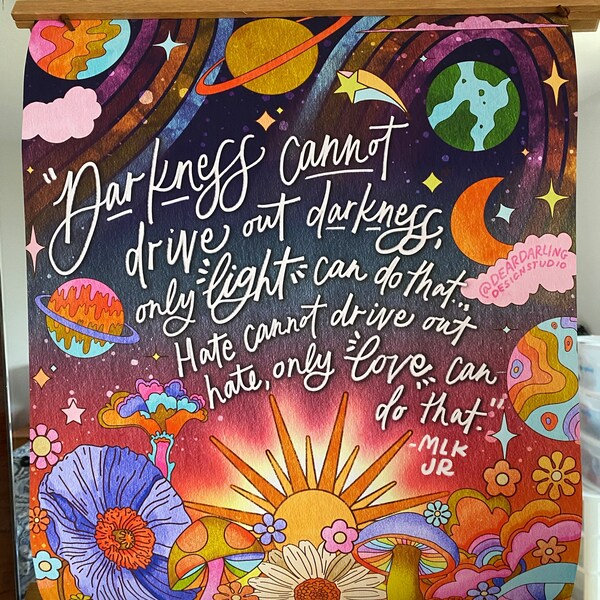 "Darkness cannot
drive out darkness,
only light can do that...
Hate cannot drive out
hate, only love can
do that."
-MLK
JR
@DEARDARLING
DESIGNSTUDIO